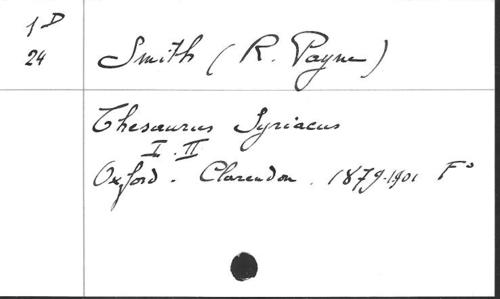 1 D
24
Smith (R. Payne)
Thesaurus Syriacus
I. II
Oxford. Clarendon. 1879-1901 F°